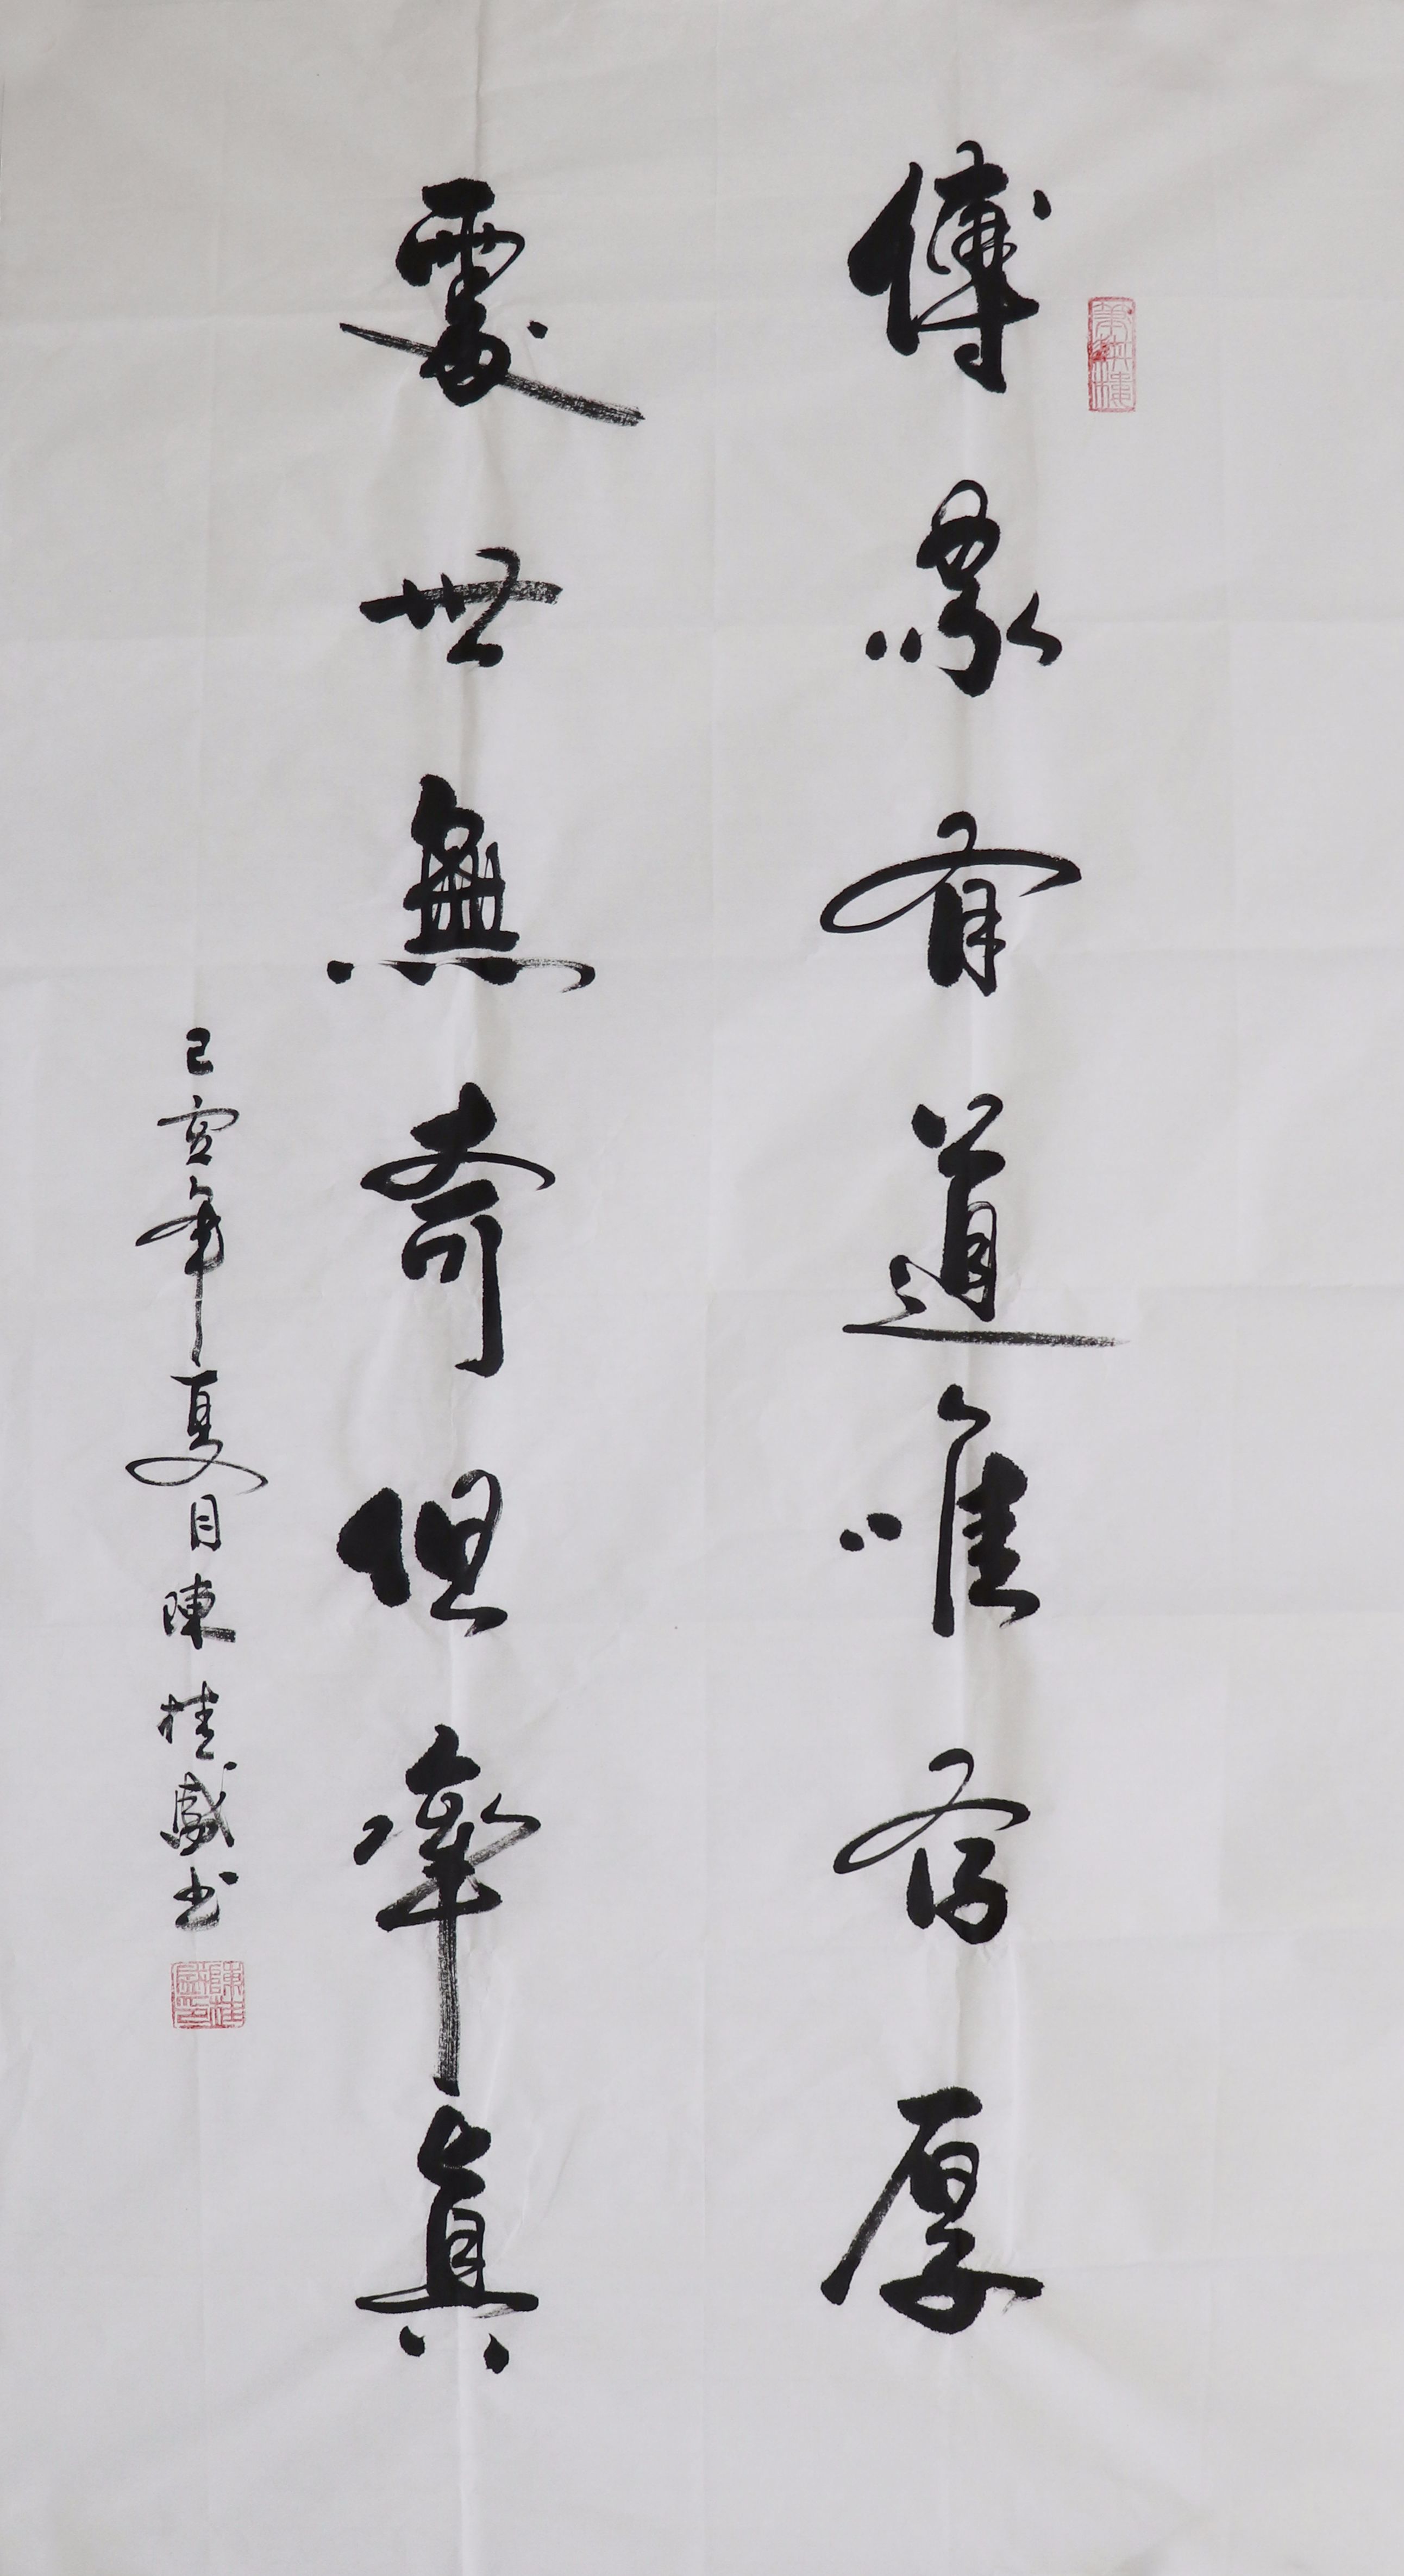 傳家有道唯存厚
處世無奇但率真
己亥年夏月陳桂盛书